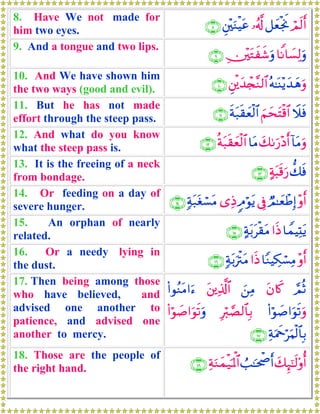 8. Have We not made for
him two eyes.
أَلَمْ نَجْعَل لَّهُۥ عَيْنَيْنِ ﴿٨﴾
9. And a tongue and two lips.
وَلِسَانًا وَشَفَتَيْنِ ﴿٩﴾
10. And We have shown him
the two ways (good and evil).
وَهَدَيْنَـٰهُ ٱلنَّجْدَيْنِ ﴿١٠﴾
11. But he has not made
effort through the steep pass.
فَلَا ٱقْتَحَمَ ٱلْعَقَبَةَ ﴿١١﴾
12. And what do you know
what the steep pass is.
وَمَآ أَدْرَىٰكَ مَا ٱلْعَقَبَةُ ﴿١٢﴾
13. It is the freeing of a neck
from bondage.
فَكُّ رَقَبَةٍ ﴿١٣﴾
14. Or feeding on a day of
severe hunger.
أَوْ إِطْعَـٰمٌ فِى يَوْمٍ ذِى مَسْغَبَةٍ ﴿١٤﴾
15. An orphan of nearly
related.
يَتِيمًا ذَا مَقْرَبَةٍ ﴿١٥﴾
16. Or a needy lying in
the dust.
أَوْ مِسْكِينًا ذَا مَتْرَبَةٍ ﴿١٦﴾
17. Then being among those
who have believed, and
advised one another to
patience, and advised one
another to mercy.
ثُمَّ كَانَ مِنَ ٱلَّذِينَ ءَامَنُوا۟
وَتَوَاصَوْا۟ بِٱلصَّبْرِ وَتَوَاصَوْا۟
بِٱلْمَرْحَمَةِ ﴿١٧﴾
18. Those are the people of
the right hand.
أُو۟لَـٰٓئِكَ أَصْحَـٰبُ ٱلْمَيْمَنَةِ ﴿١٨﴾